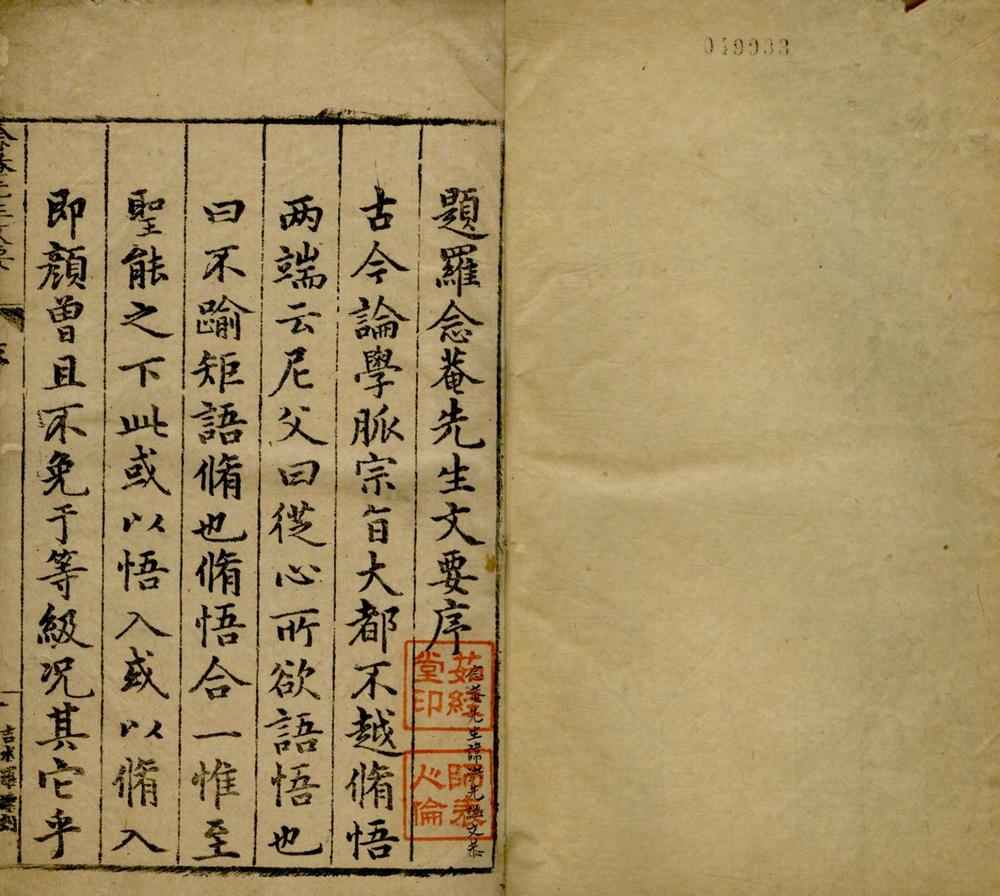 049933
題羅念菴先生文要序
念菴先生諱洪先謚文恭
茹經堂印
師表人倫
古今論學脈宗旨大都不越脩悟
两端云尼父曰從心所欲語悟也
曰不踰矩語脩也脩悟合一惟至
聖能之下此或以悟入或以脩入
即顏曾且不免于等級况其它乎
念菴先生文要
序
一